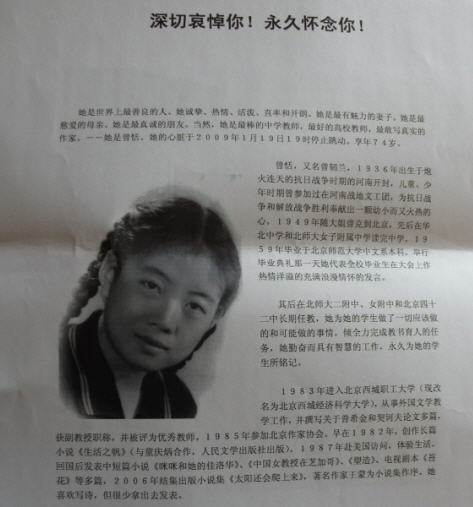 深切哀悼你！永久怀念你！
她是世界上最善良的人。她诚挚、热情、活泼、直率和开朗。她是最有魅力的妻子。她是最
慈爱的母亲。她是最真诚的朋友。当然，她是最棒的中学教师，最好的高校教师，最敢写真实的
作家。－－她是曾恬。她的心脏于２００９年１月１９日１９时停止跳动。享年７４岁。
曾恬，又名曾韧兰，１９３６年出生于炮
火连天的抗日战争时期的河南开封，儿童、少
年时期曾参加过在河南战地文工团，为抗日战
争和解放战争胜利奉献出一颗幼小而又火热的
心。１９４９年随大姐曾克到北京，先后在华
北中学和北师大女子附属中学读完中学。１９
５９年毕业于北京师范大学中文系本科。举行
毕业典礼那一天她代表全校毕业生在大会上作
热情洋溢的充满浪漫情怀的发言。
其后在北师大二附中、女附中和北京四十
二中长期任教，她为她的学生做了一切应该做
的和可能做的事情。倾全力完成教书育人的任
务，她勤奋而具有智慧的工作，永久为她的学
生所铭记。
１９８３年进入北京西城职工大学（现改
名为北京西城经济科学大学），从事外国文学教
学工作，并撰写关于普希金和契诃夫论文多篇，
获副教授职称，并被评为优秀教师，１９８５年参加北京作家协会。早在１９８２年，创作长篇
小说《生活之帆》（与董庆炳合作，人民文学出版社出版），１９８７年赴美国访问、体验生活，
回国后发表中短篇小说《咪咪和她的佳洛华》、《中国女教授在芝加哥》、《塑造》，电视剧本《苔
花》等多篇，２００６年结集出版小说集《太阳还会爬上来》，著名作家王蒙为小说集作序。她
喜欢写诗，但很少拿出去发表。